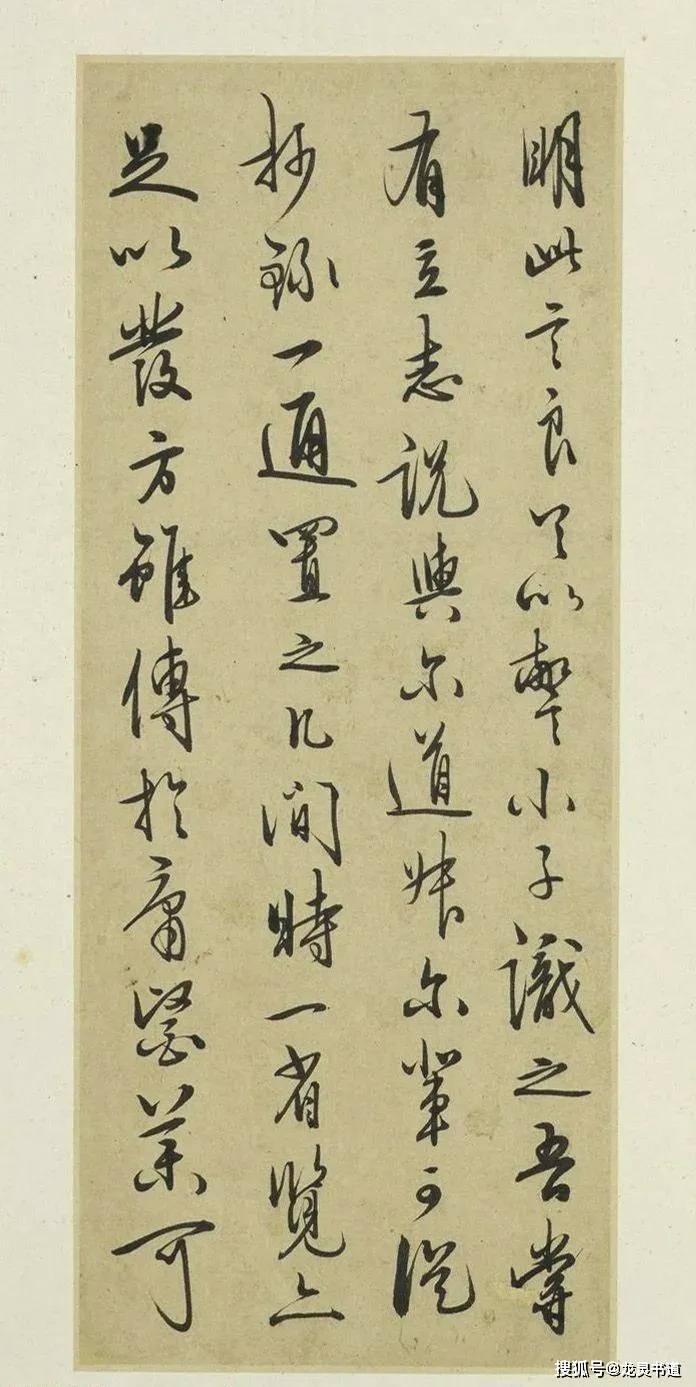 明此意良足以警小子識之吾嘗
有立志說與爾道叔爾輩可從
抄錄一通置之几間時一省覽亦
足以發方雖傳於庸醫藥可
搜狐号@龙灵书道